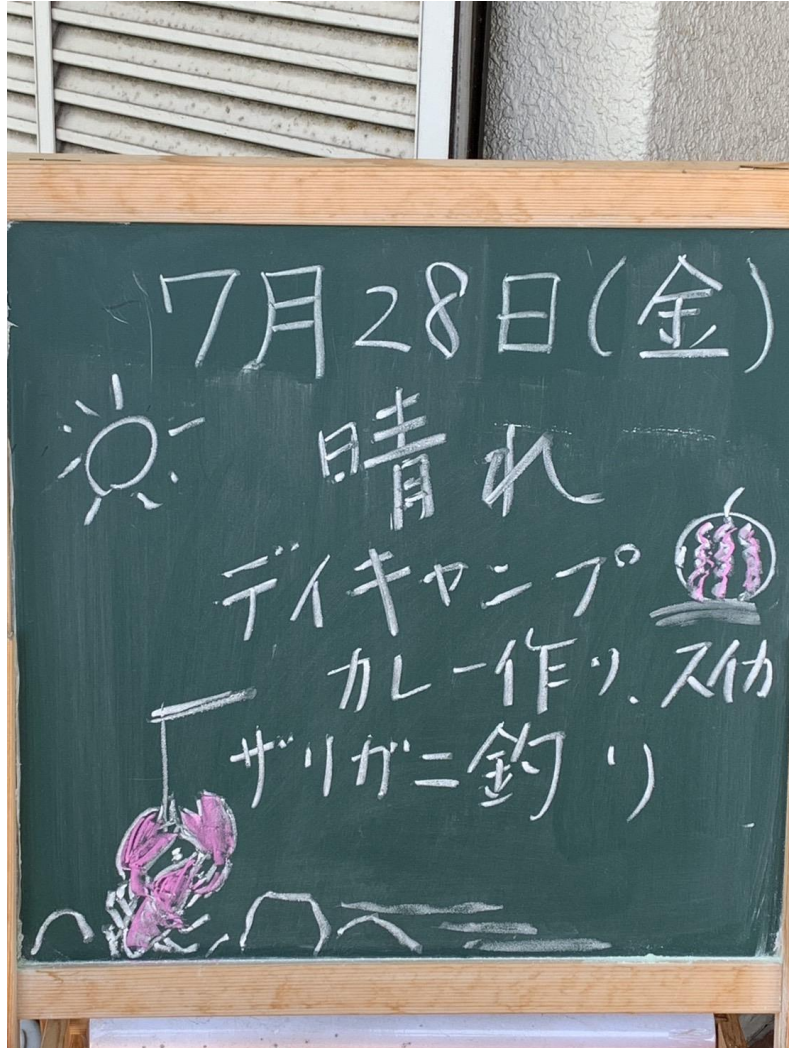 7月28日(金)
晴れ
デイキャンプ
カレー作り、スイカ
ザリガニ釣り